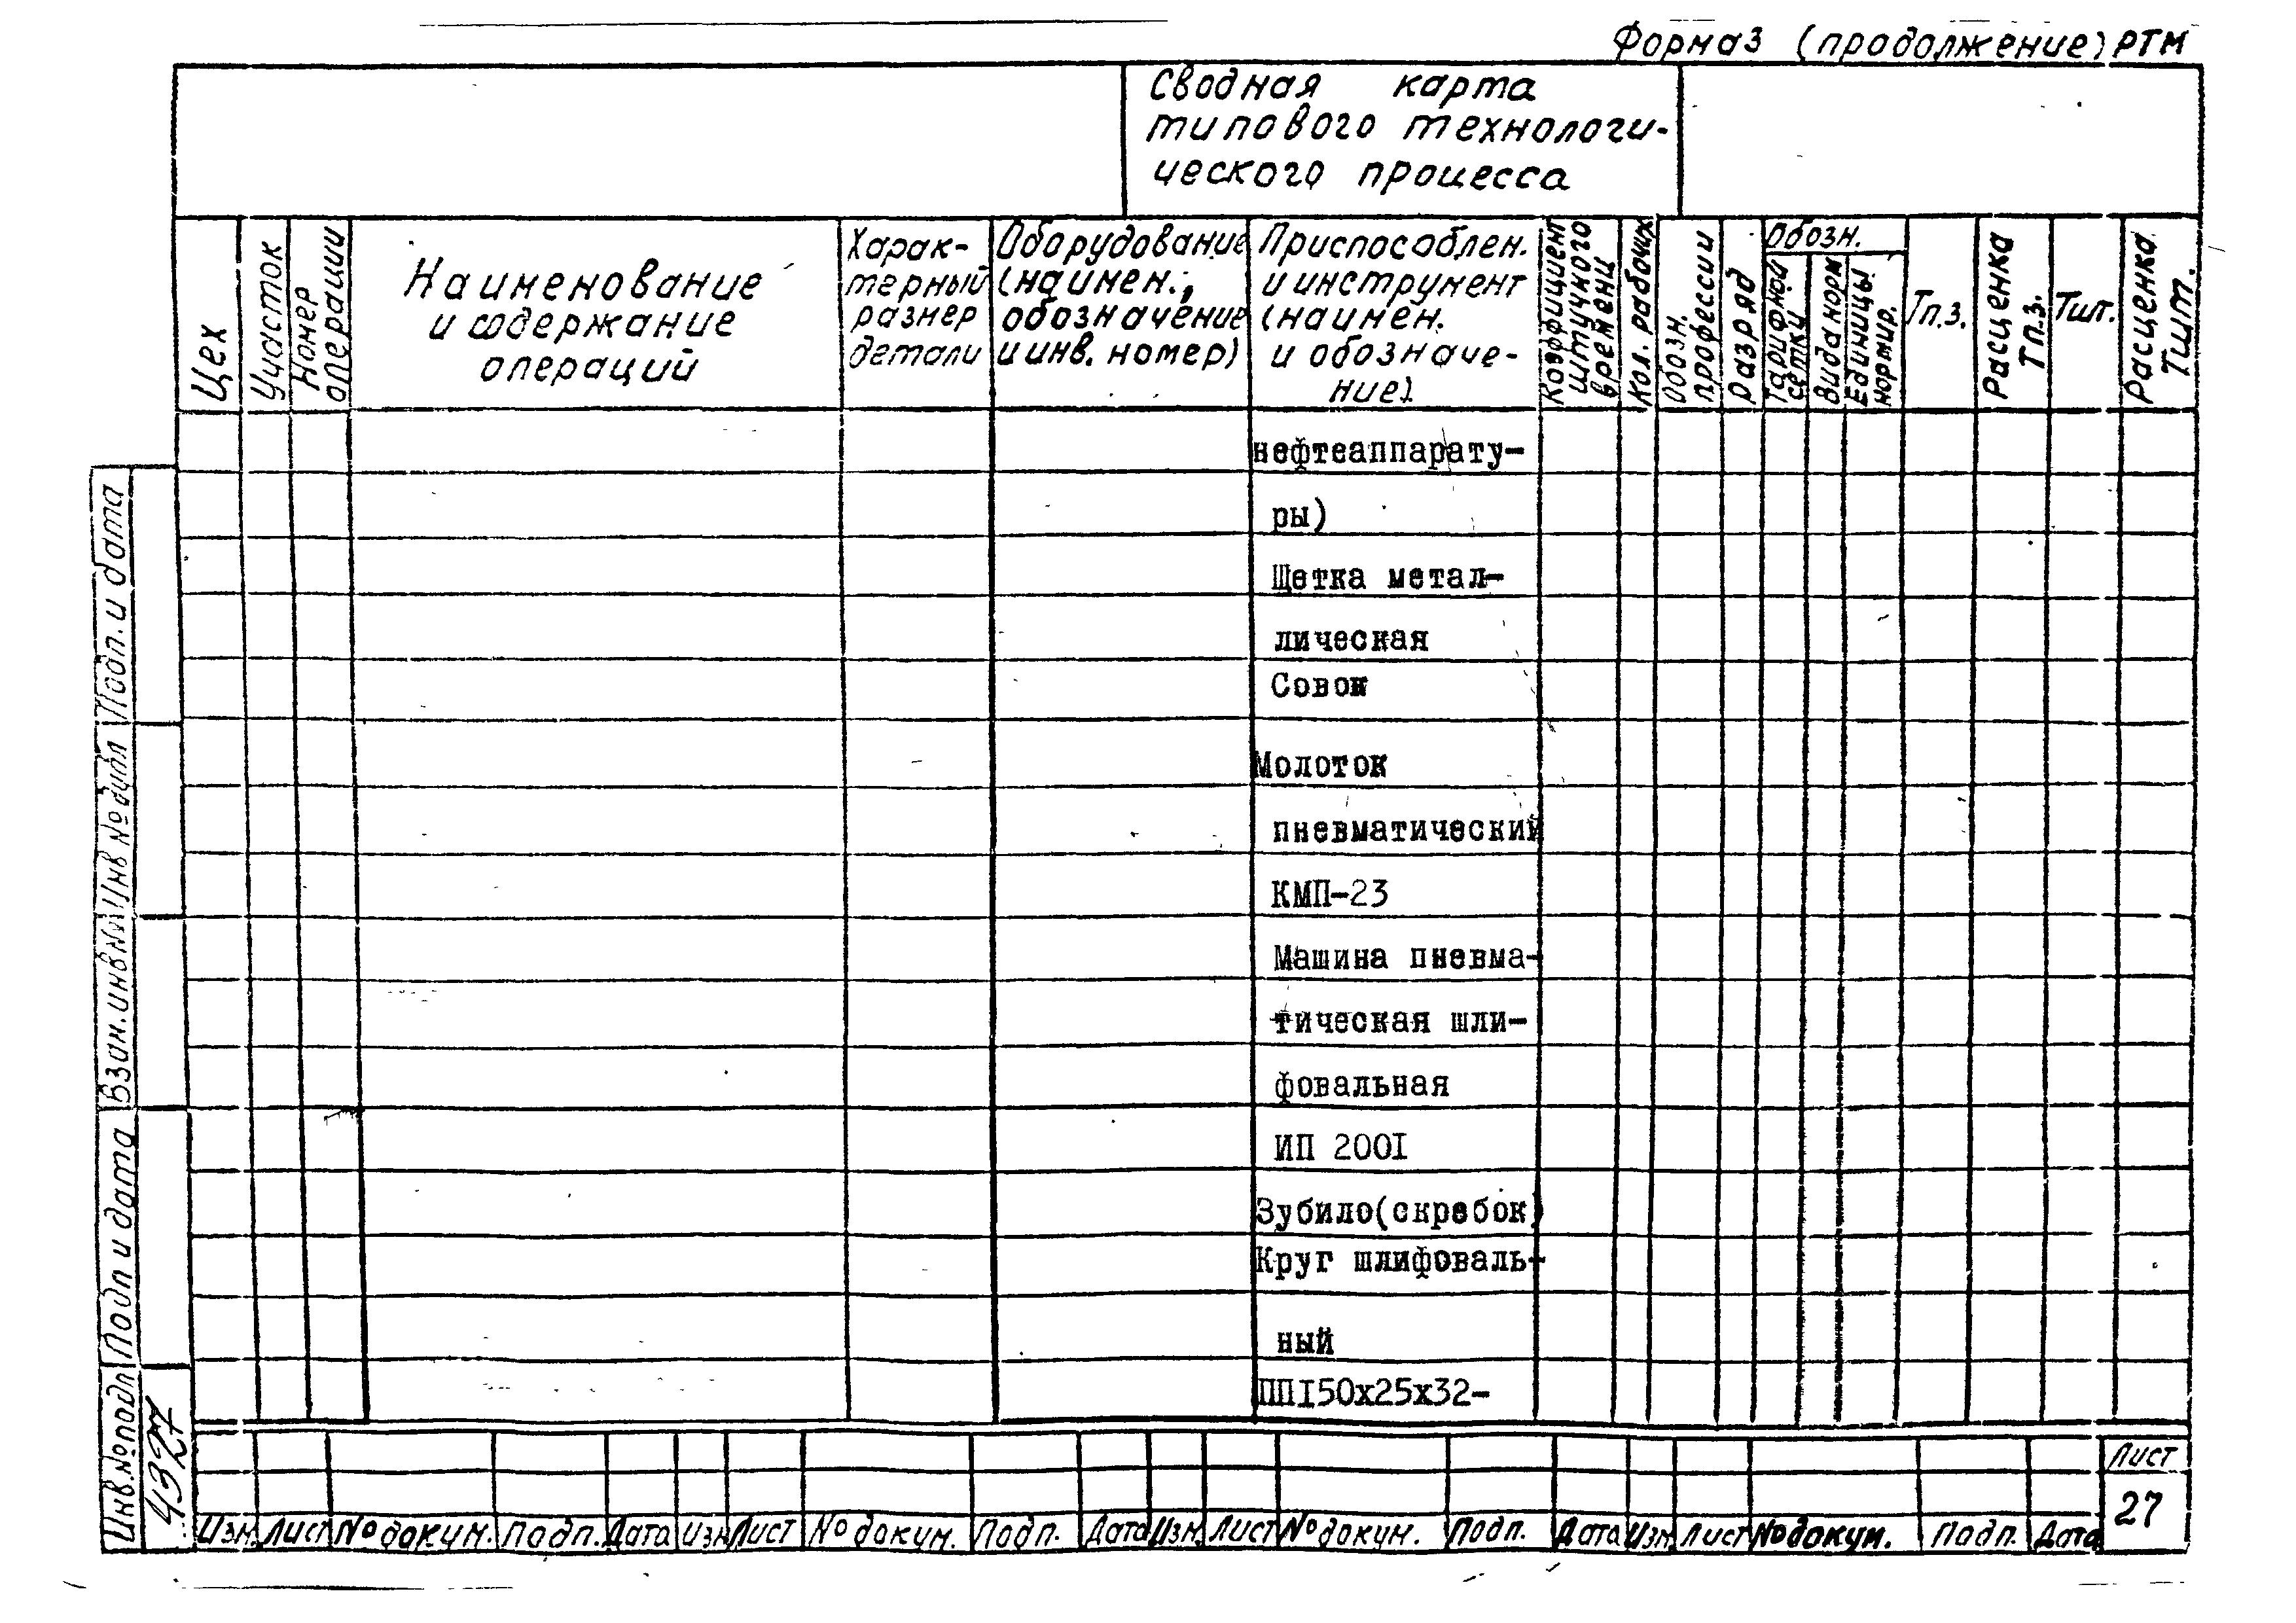 Форма3 (продолжение) РТМ
Сводная карта
типового технологи-
ческого процесса
Цех
Участок
Номер
операции
Наименование
и содержание
операций
Харак-
терный
размер
детали
Оборудование
(наимен.,
обозначение
и инв. номер)
Приспособлен.
и инструмент
(наимен.
и обозначе-
ние)
Коэффициент
штучного
времени
Кол. рабочих
Обозн.
профессии
Разряд
Обозн.
Тарифной
сетки
Вида норм
Единицы
нормир.
Тп.з.
Расценка
Тп.з.
Тшт.
Расценка
Тшт.
нефтеаппарату-
ры)
Щетка метал-
лическая
Совок
Молоток
пневматический
КМП-23
Машина пневма-
тическая шли-
фовальная
ИП 200I
Зубило(скребок)
Круг шлифоваль-
ный
ППI50х25х32-
Подп. и дата
Инв № дубл
Взам. инв №
Подп и дата
Инв.№подл
4327
Изм. Лист № докум. Подп. Дата Изм Лист № докум. Подп. Дата Изм. Лист № докум. Подп. Дата Изм Лист № докум. Подп. Дата
Лист
27